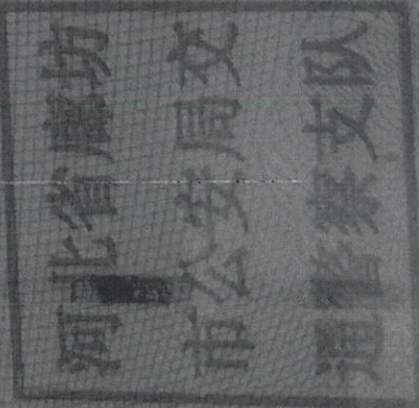 河北省廊坊
市公安局交
通警察支队